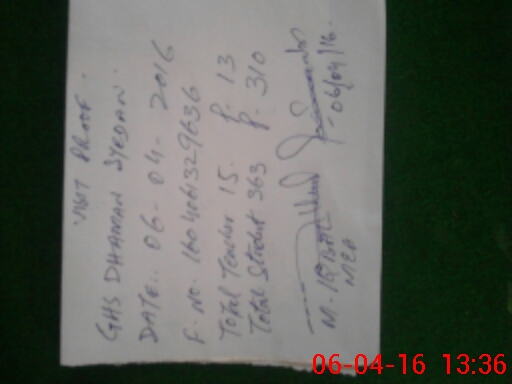 Visit PROOF.
GHS DHAMAN SYEDAN.
DATE:. 06-04-2016
F. No. 1604061329636
Total Teacher 15. P. 13
Total Student 363 P. 310
06/04/16.
M. IQBAL
MEA
06-04-16 13:36